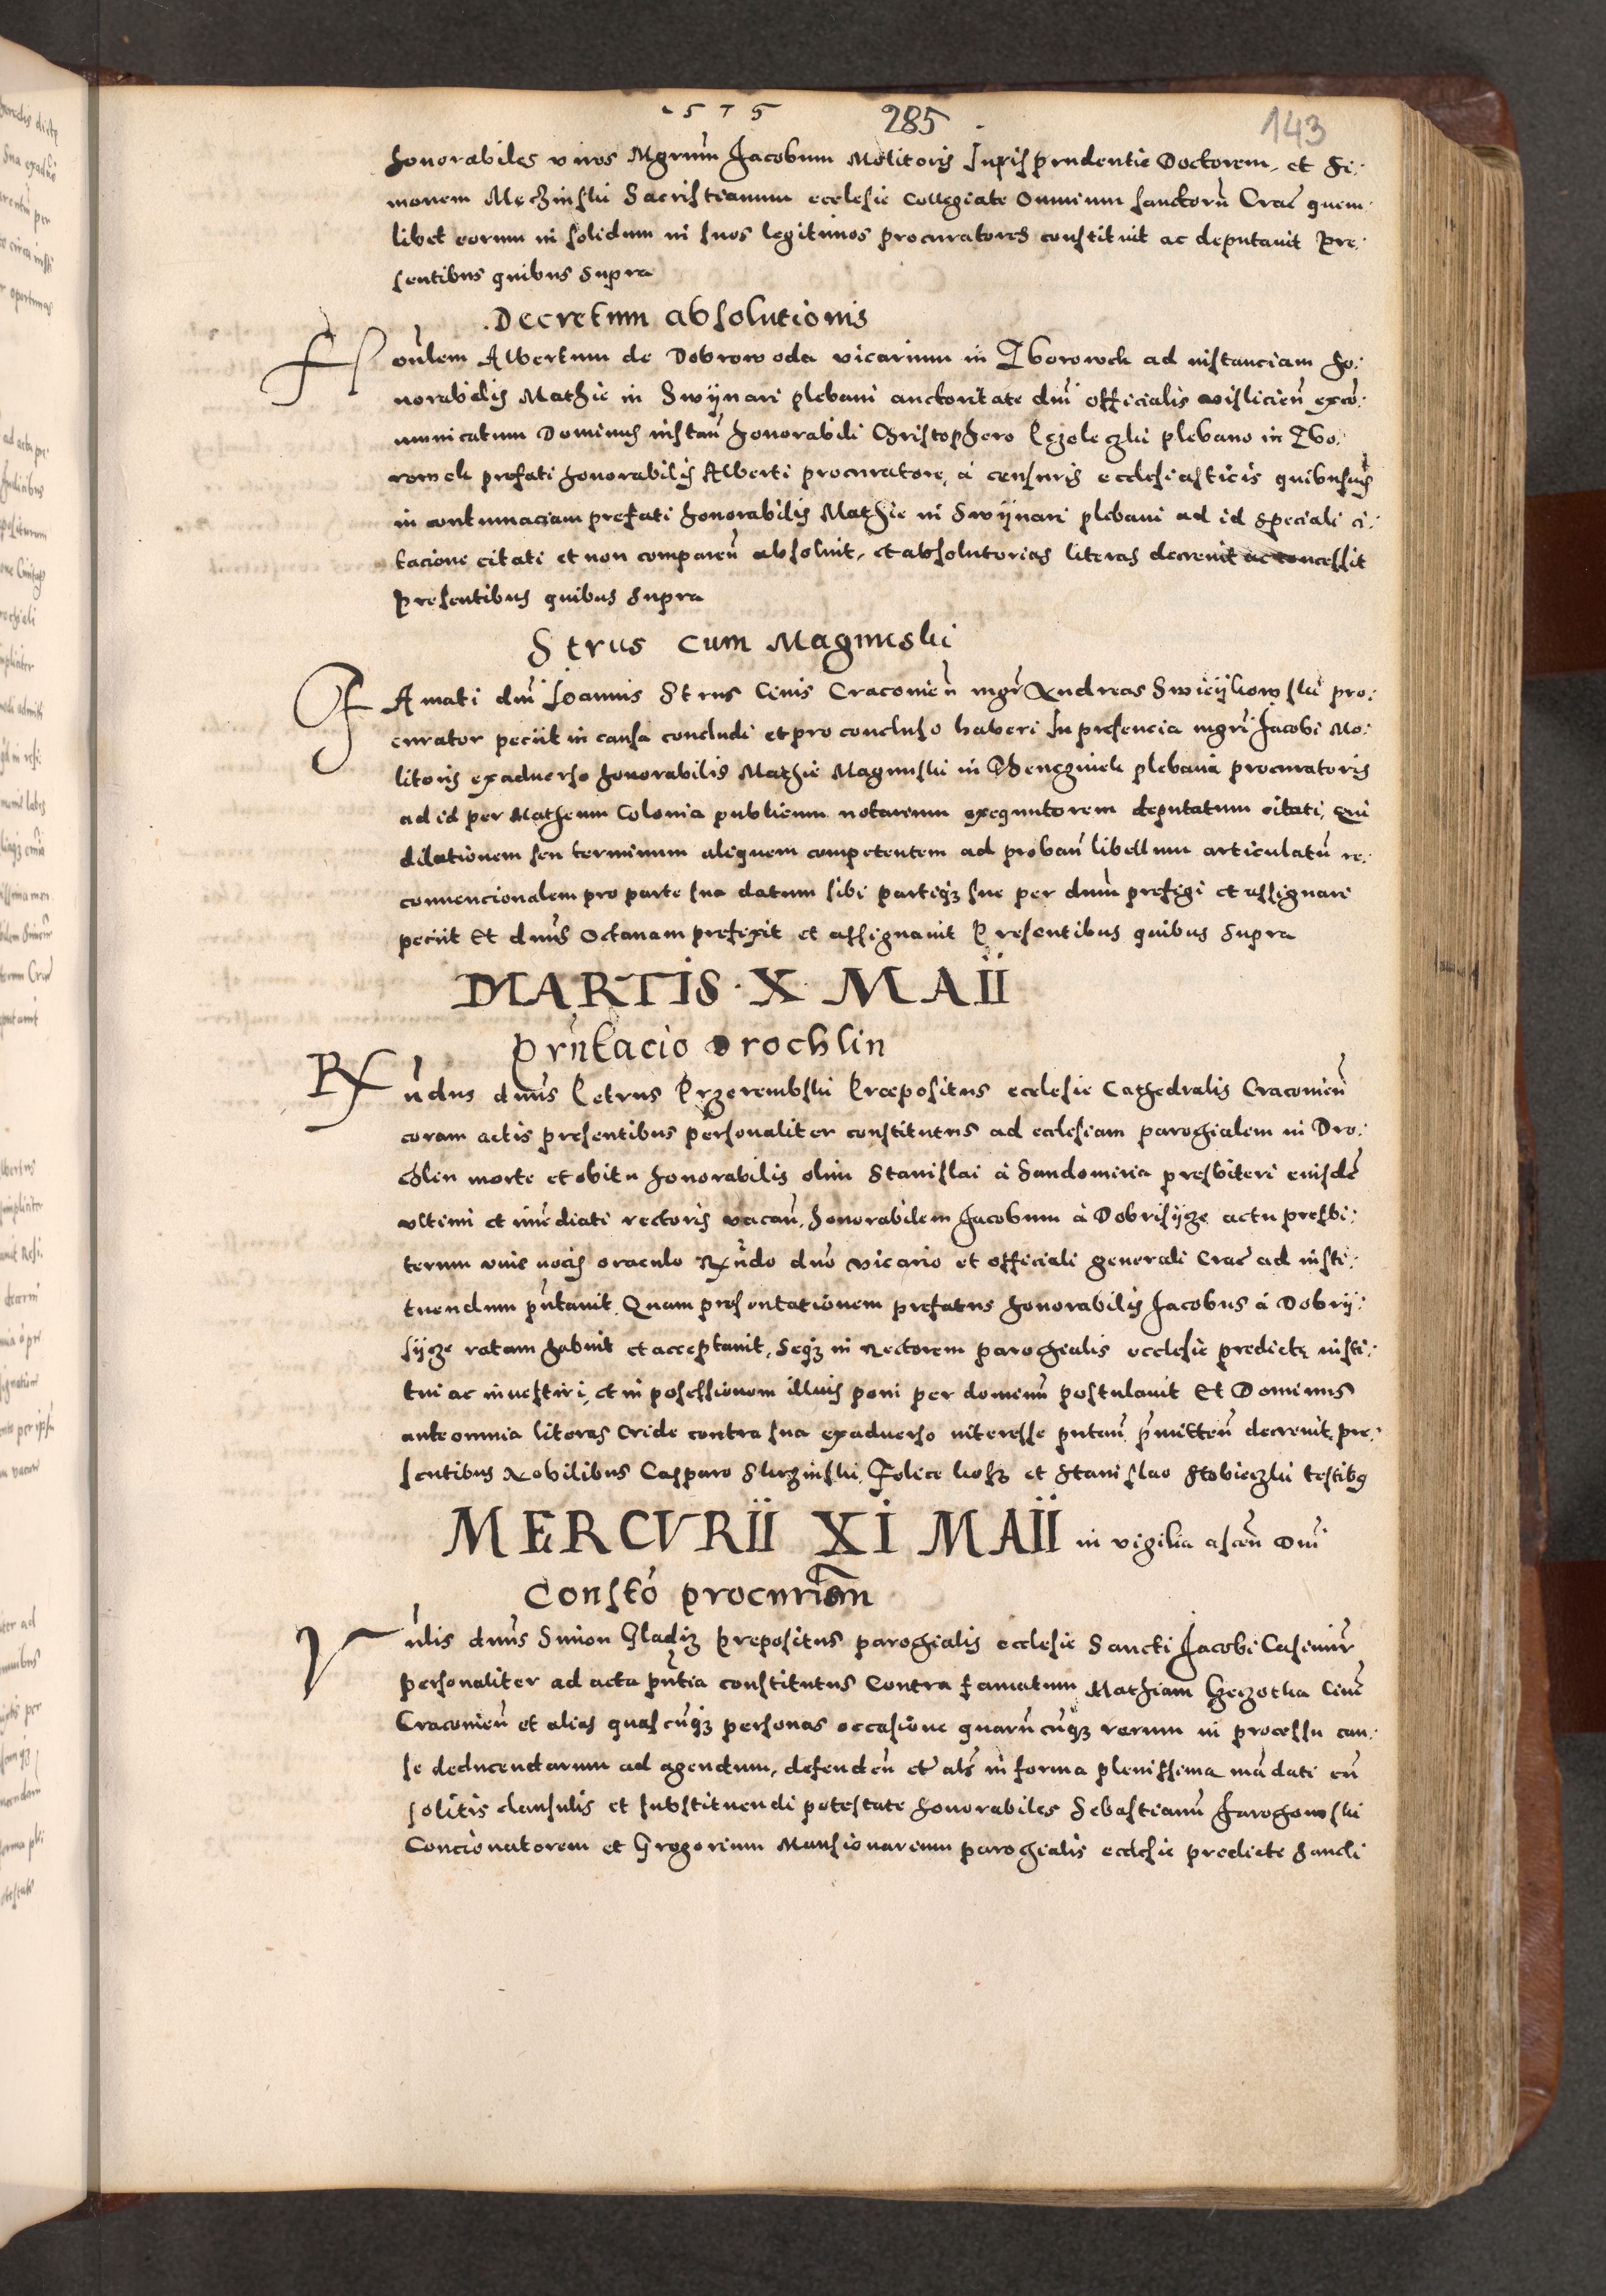 1575 285 143
honorabiles viros Mgrum Jacobum Molitoris Jurisprudentie Doctorem, et Si:
monem Mechinski Sacristianum ecclesie Collegiate Omnium sanctorū Crac quem:
libet eorum in solidum in suos legitimos procuratores constituit ac deputauit Pre:
sentibus quibus supra
Decretum absolutionis
Honūlem Albertum de Dobrowoda vicarium in Zborowek ad instanciam ho:
norabilis Mathie in Swÿnari plebani auctoritate dnī officialis visliciēn excō:
municatum Dominus instan̄ honorabili Christophero plebano in Zbo:
rowek prefati honorabilis Alberti procuratore, à censuris ecclesiasticis quibusuis
in contumaciam prefati honorabilis Mathie in Swÿnari plebani ad id speciali ci:
tacione citati et non comparen̄ absoluit, et absolutorias literas decreuit ac concessit
presentibus quibus supra
Strus cum Magnuski
Famati dnī Joannis Strus Ciuis Cracouien̄ mgr̄ Andreas pro:
curator peciit in causa concludi et pro concluso haberi In presencia mgrī Jacobi Mo:
litoris exaduerso honorabilis Mathie Magnuski in plebani procuratoris
ad id per Matheum Colonia publicum notarium exequutorem deputatum citati, qui
dilationem seu terminum aliquem competentem ad proban̄ libellum articulatū re:
conuencionalem pro parte sua datum sibi partiqȝ sue per dnūm prefigi et assignari
peciit Et dnūs Octauam prefixit et assignauit Presentibus quibus supra
MARTIS · X · MAII
Prn̄tacio Drochlin
Rn̄dus dnūs Petrus Przerembski Praepositus ecclesie Cathedralis Cracouien̄
coram actis presentibus personaliter constitutus ad ecclesiam parochialem in Dro:
chlin morte et obitu honorabilis olim Stanislai à Sandomiria presbiteri eiusdē
vltimi et imēdiati rectoris vacan̄, honorabilem Jacobum à Dobrisÿcze actu presbi:
terum viue uocis oraculo Rn̄do dnō vicario et officiali generali Crac ad insti:
tuendum pn̄tauit. Quam presentationem prefatus honorabilis Jacobus à Dobrÿ:
sÿcze ratam habuit et acceptauit, Seqȝ in Rectorem parochialis ecclesie predictę insti:
tui ac inuestiri, et in possessionem illius poni per dominū postulauit Et Dominus
ante omnia literas Cride contra sua exaduerso interesse putan̄ p̄mitten̄ decreuit, pre:
sentibus Nobilibus Casparo, Felice et Stanislao testibꝫ
MERCVRII XI MAII in vigilia ascen̄ Dnī
Constō procuriām
Vn̄lis dnūs Simon Gladiȝ Prepositus parochialis ecclesie Sancti Jacobi Casimir̄
personaliter ad acta pn̄tia constitutus Contra famatum Mathiam Ciuē
Cracouien̄ et alias quascūqȝ personas occasione quarūcūqȝ rerum in processu cau:
se deducendarum ad agendum, defenden̄ et als in forma plenissima mādati cū
solitis clausulis et substituendi potestate honorabiles Sebastianū Jarogowski
Concionatorem et Gregorium Mansionarium parochialis ecclesie predicte Sancti